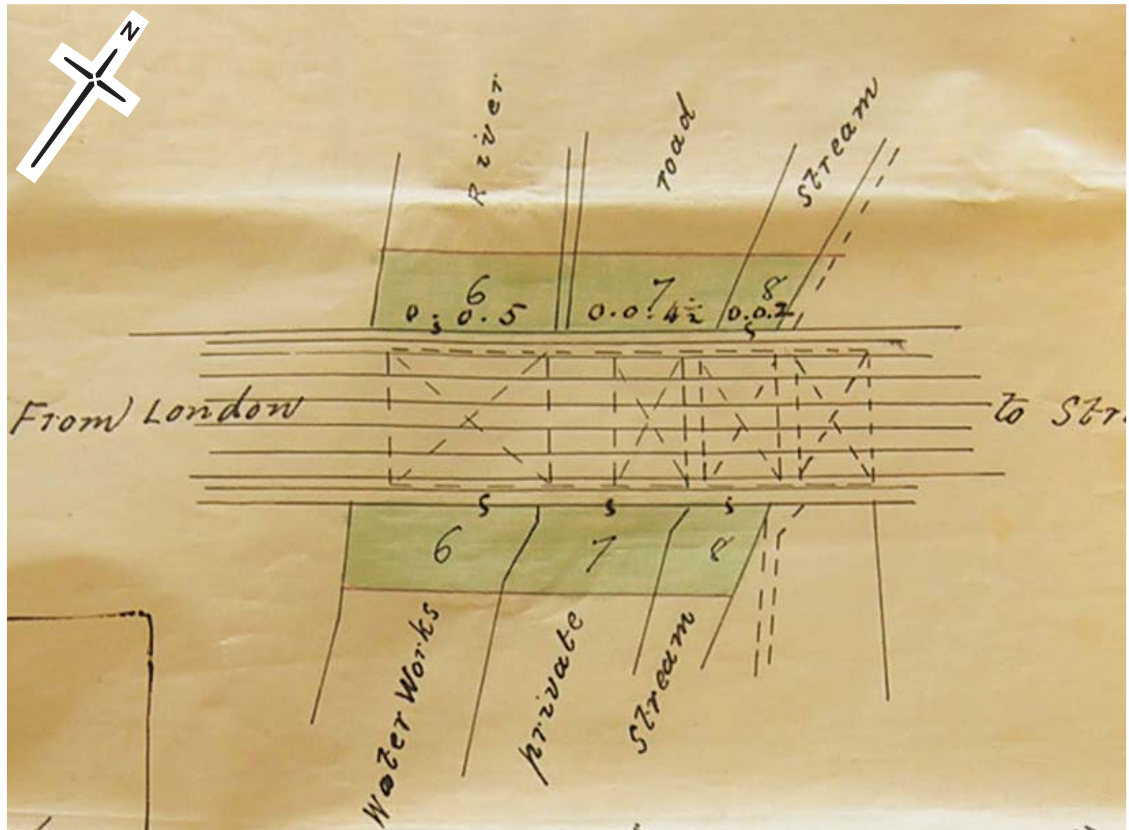 N
River
road
Stream
6
7
8
0.0.5
0.0.4½
0.0.2
s
s
From London
to Str
s
s
s
6
7
8
Water Works
private
Stream